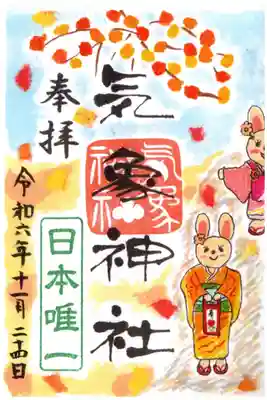 気象神社
気象
神社
奉拝
日本唯一
令和六年十一月二十四日